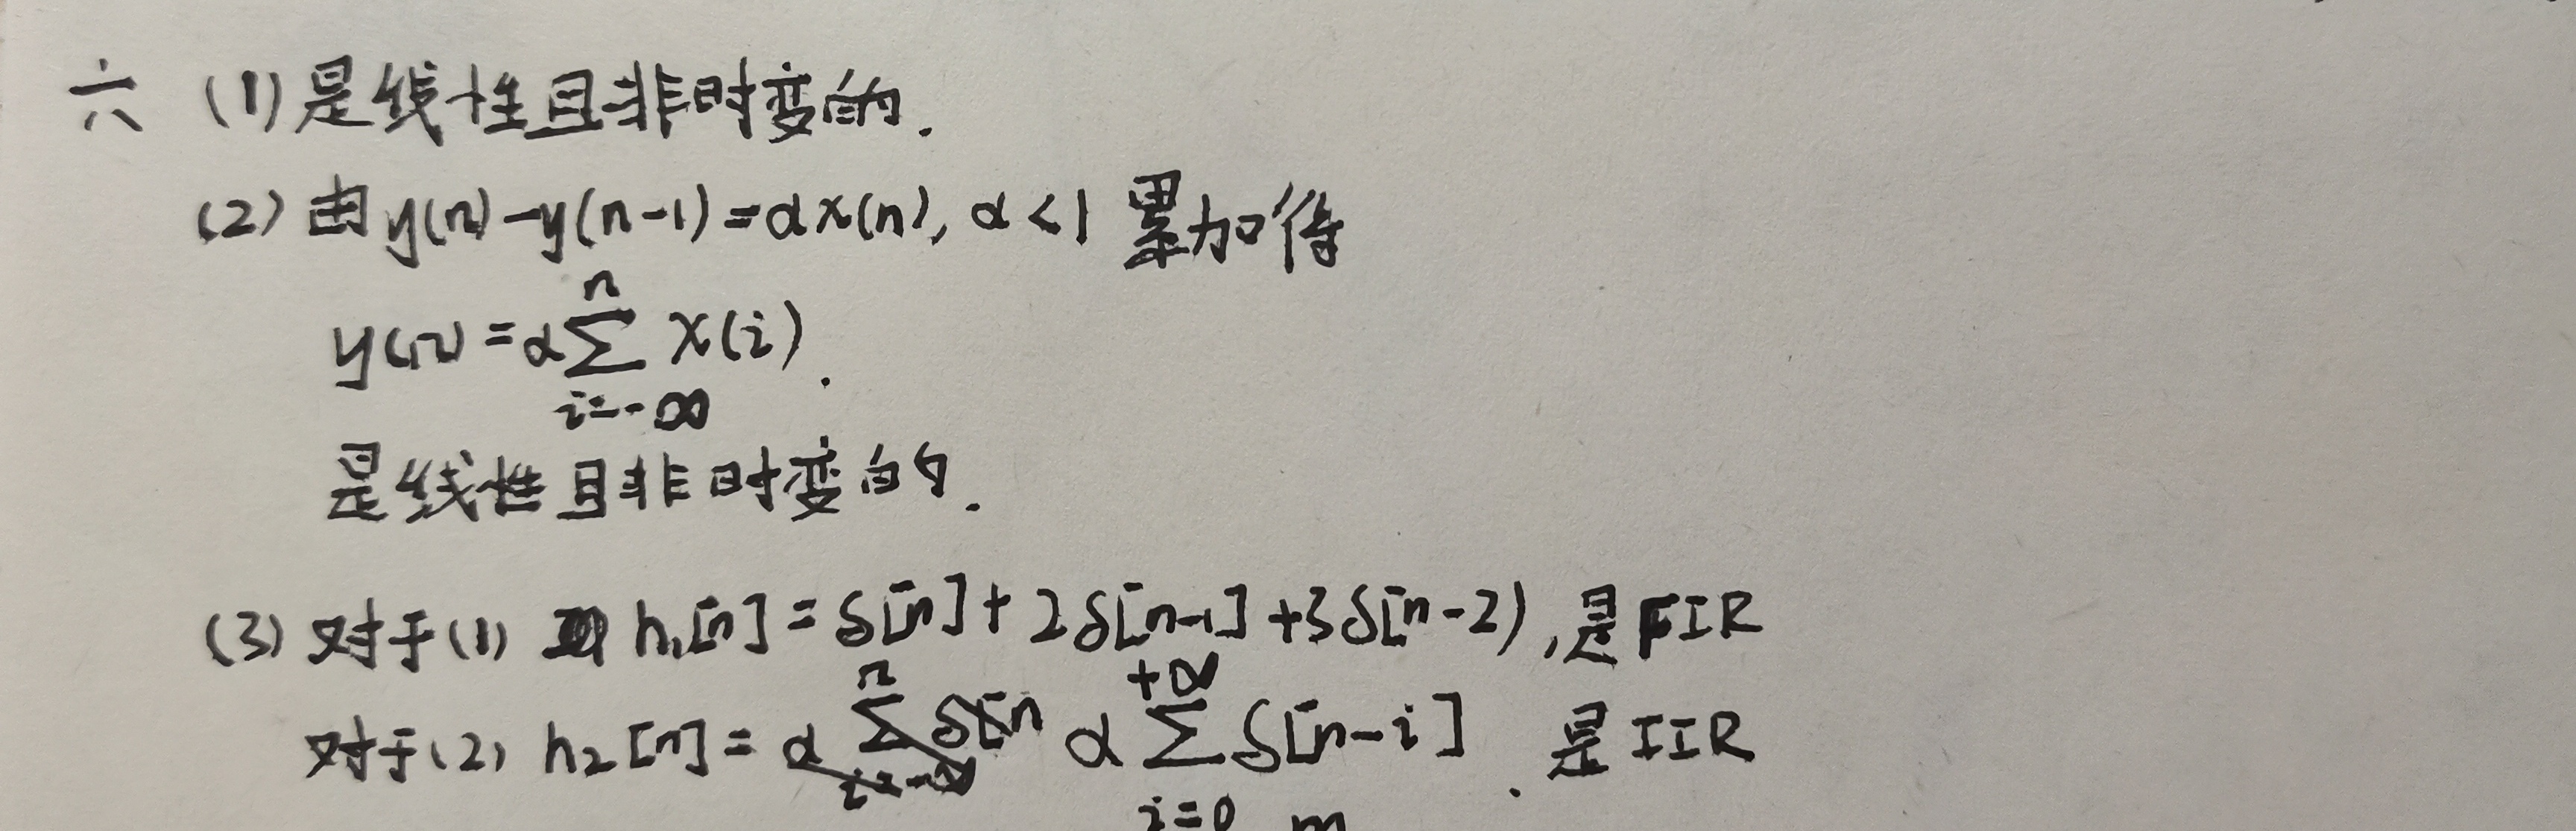 六 (1) 是线性且非时变的.
(2) 由 y(n)-y(n-1)=αx(n), α<1 累加得
y(n)=α∑_{i=-∞}^{n} x(i).
是线性且非时变的.
(3) 对于(1) h₁[n]=δ[n]+2δ[n-1]+3δ[n-2), 是FIR
对于(2) h₂[n]= α∑_{i=0}^{+∞} δ[n-i]. 是IIR